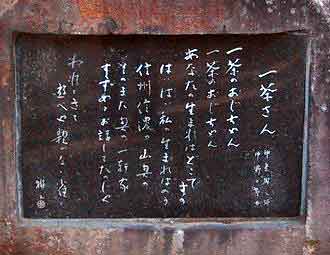 一茶さん
一茶のおじちゃん
一茶のおじちゃん
あなたの生まれはどこですの
はいはい私の生まれはのう
信州信濃の山奥の
そのまた奥の一軒家
すずめとお話してたのじゃ
われときて
遊べや親のない雀